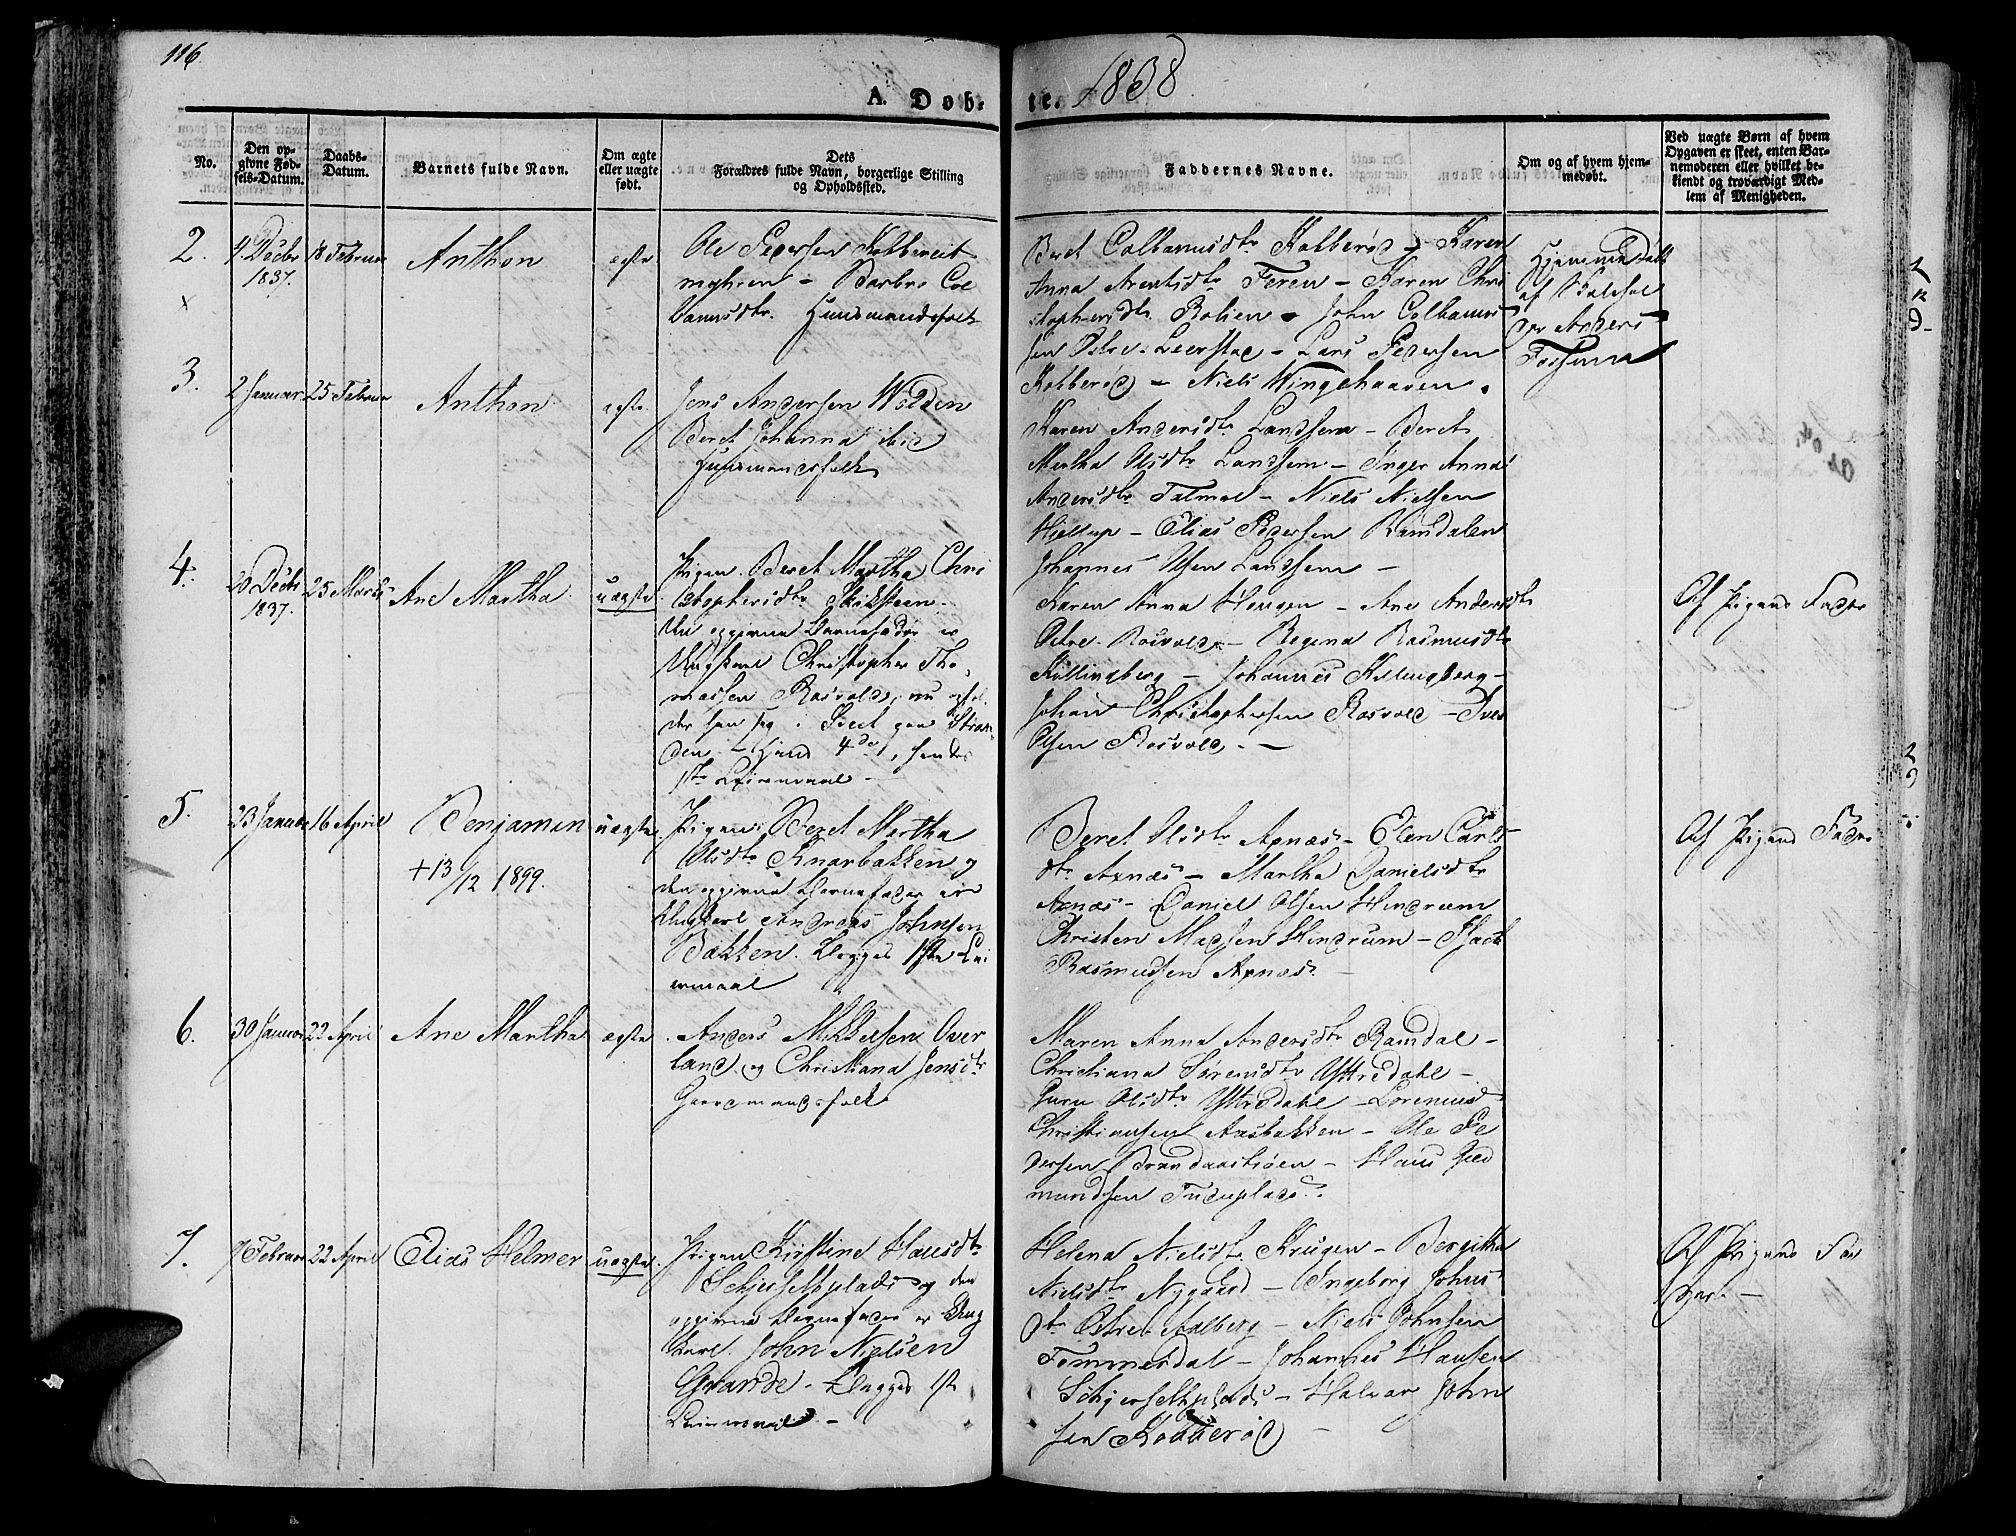 116
A. Døb-
te. 1838
No.
Den op-
givne Fød-
sels-Datum.
Daabs-
Datum.
Barnets fulde Navn.
Om ægte
eller uægte
født.
Dets
Forældres fulde Navn, borgerlige Stilling
og Opholdssted.
Faddernes Navne.
Om og af hvem hjem-
medøbt.
Ved uægte Børn af hvem
Opgaven er skeet, enten Bar-
nemoderen eller hvilket be-
kjendt og troværdigt Med-
lem af Menigheden.
2.
4 Decbr
1837.
18 Februar
Anthon
ægte
Ole Pedersen
Barbro Col
banusdtr. Huusmandsfolk
Beret Colbanusdtr Kolberød - Karen
Anna Arentsdtr Feren - Karen Chri
stophersdtr Bolien - John Colbanus
sen Østre Leerstad - Lars Pedersen
Kolberød - Niels Wingehaaven.
Hjemmedøbt
af
Anders
Fossum
3.
2 Januar
25 Februar
Anthon
ægte
Jens Andersen Wolden
Beret Johanna ibid
Huusmandsfolk
Karen Andersdtr Landsem - Beret
Martha Olsdtr Landsem - Inger Anna
Andersdtr - Niels Nielsen
Hjellup - Elias Pedersen Ramdalen
Johannes Olsen Landsem -
4.
20 Decbr
1837.
25 Marts
Ane Martha
uægte
Pigen Beret Martha Chri
stophersdtr
den opgivne Barnefader er
Ungkarl Christopher Tho
massen Rosvold, nu ophol
der han sig i Stran
den. - Hans 4de, hendes
1ste Leiermaal -
Karen Anna Haugen - Ane Andersdtr
Østre Rosvold - Regina Rasmusdtr
Killingberg - Johannes Killingberg -
Johan Christophersen Rosvold - Iver
Olsen Rosvold. -
Af Pigens Fader
5.
23 Januar
16 April
Benjamin
+ 13/12 1899.
uægte
Pigen Beret Martha
Olsdtr Knarbakken og
den opgivne Barnefader er
Ungkarl Andreas Johnsen
Bakken. Begges 1ste Lei
ermaal
Beret Olsdtr Axnæs - Elen Carls
dtr Axnæs - Martha Danielsdtr
Axnæs - Daniel Olsen Hindrum
Christen Madsen Hindrum -
Rasmussen Axnæs -
Af Pigens Fader
6.
30 Januar
22 April
Ane Martha
ægte
Anders Mikkelsen Over
land og Christiana Jensdtr
Gaardmandsfolk
Maren Anna Andersdtr Ramdal -
Christiana Sørensdtr Yttredahl -
Guru Olsdtr Yttredahl - Lorentius
Christiansen Axsbakken - Ole Pe
dersen - Hans Gud
mundsen
7.
7 Februar
22 April
Elias Helmer
uægte
Pigen Kirstine Hansdtr
Schjerfelhplads og den
opgivne Barnefader er Ung
karl John Nielsen
Grande - Begges 1ste
Leiermaal -
Helena Nielsdtr - Bergitha
Nielsdtr Nygaard - Ingeborg Johns
dtr Østre Aalberg - Niels Johnsen
Tømmerdal - Johannes Hansen
- Halvar John
sen Kolberød -
Af Pigens Fa
der. -